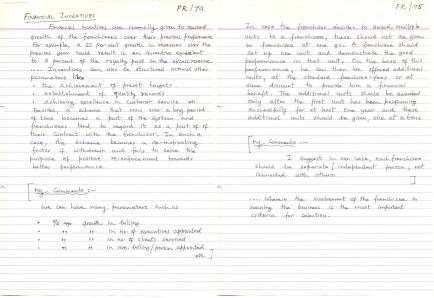 FR/74
FINANCIAL INCENTIVES
Financial incentives are normally given to reward
growth of the franchisees over their previous performance.
For example, a 25 per cent growth in revenues over the
previous year could result in an incentive equivalent
to 5 percent of the royalty paid on the excess revenue.
Incentives can also be structured around other
parameters like
• the achievement of preset targets
• establishment of quality records
• achieving excellence in customer service etc
Besides, a scheme that runs over a long period
of time becomes a part of the system and
franchisees tend to regard it as a part of
their contract with the franchisor. In such a
case, the scheme becomes a de-motivating
factor if withdrawn and fails to serve the
purpose of positive re-enforcement towards
better performance.
[My Comments :-
We can have many parameters such as
• % growth in billing
• " " in no. of executives appointed
• " " in no. of clients serviced
• " " in ave. billing/person appointed
etc.]
FR/75
In case the franchisor decides to award multiple
units to a franchisee, these should not be given
to franchisee at one go. A franchisee should
set up one unit and demonstrate the good
performance in that unit. On the basis of this
performance, he can then be offered additional
units, at the standard franchise-fees or at
some discount to provide him a financial
benefit. The additional units should be awarded
only after the first unit has been performing
successfully for at least one year and these
additional units should be given one at a time.
[My Comments :-
I suggest in our case, each franchisee
should be separate/independent person; not
connected with others.
]
.... wherein the involvement of the franchisee in
running the business is the most important
criteria for selection.